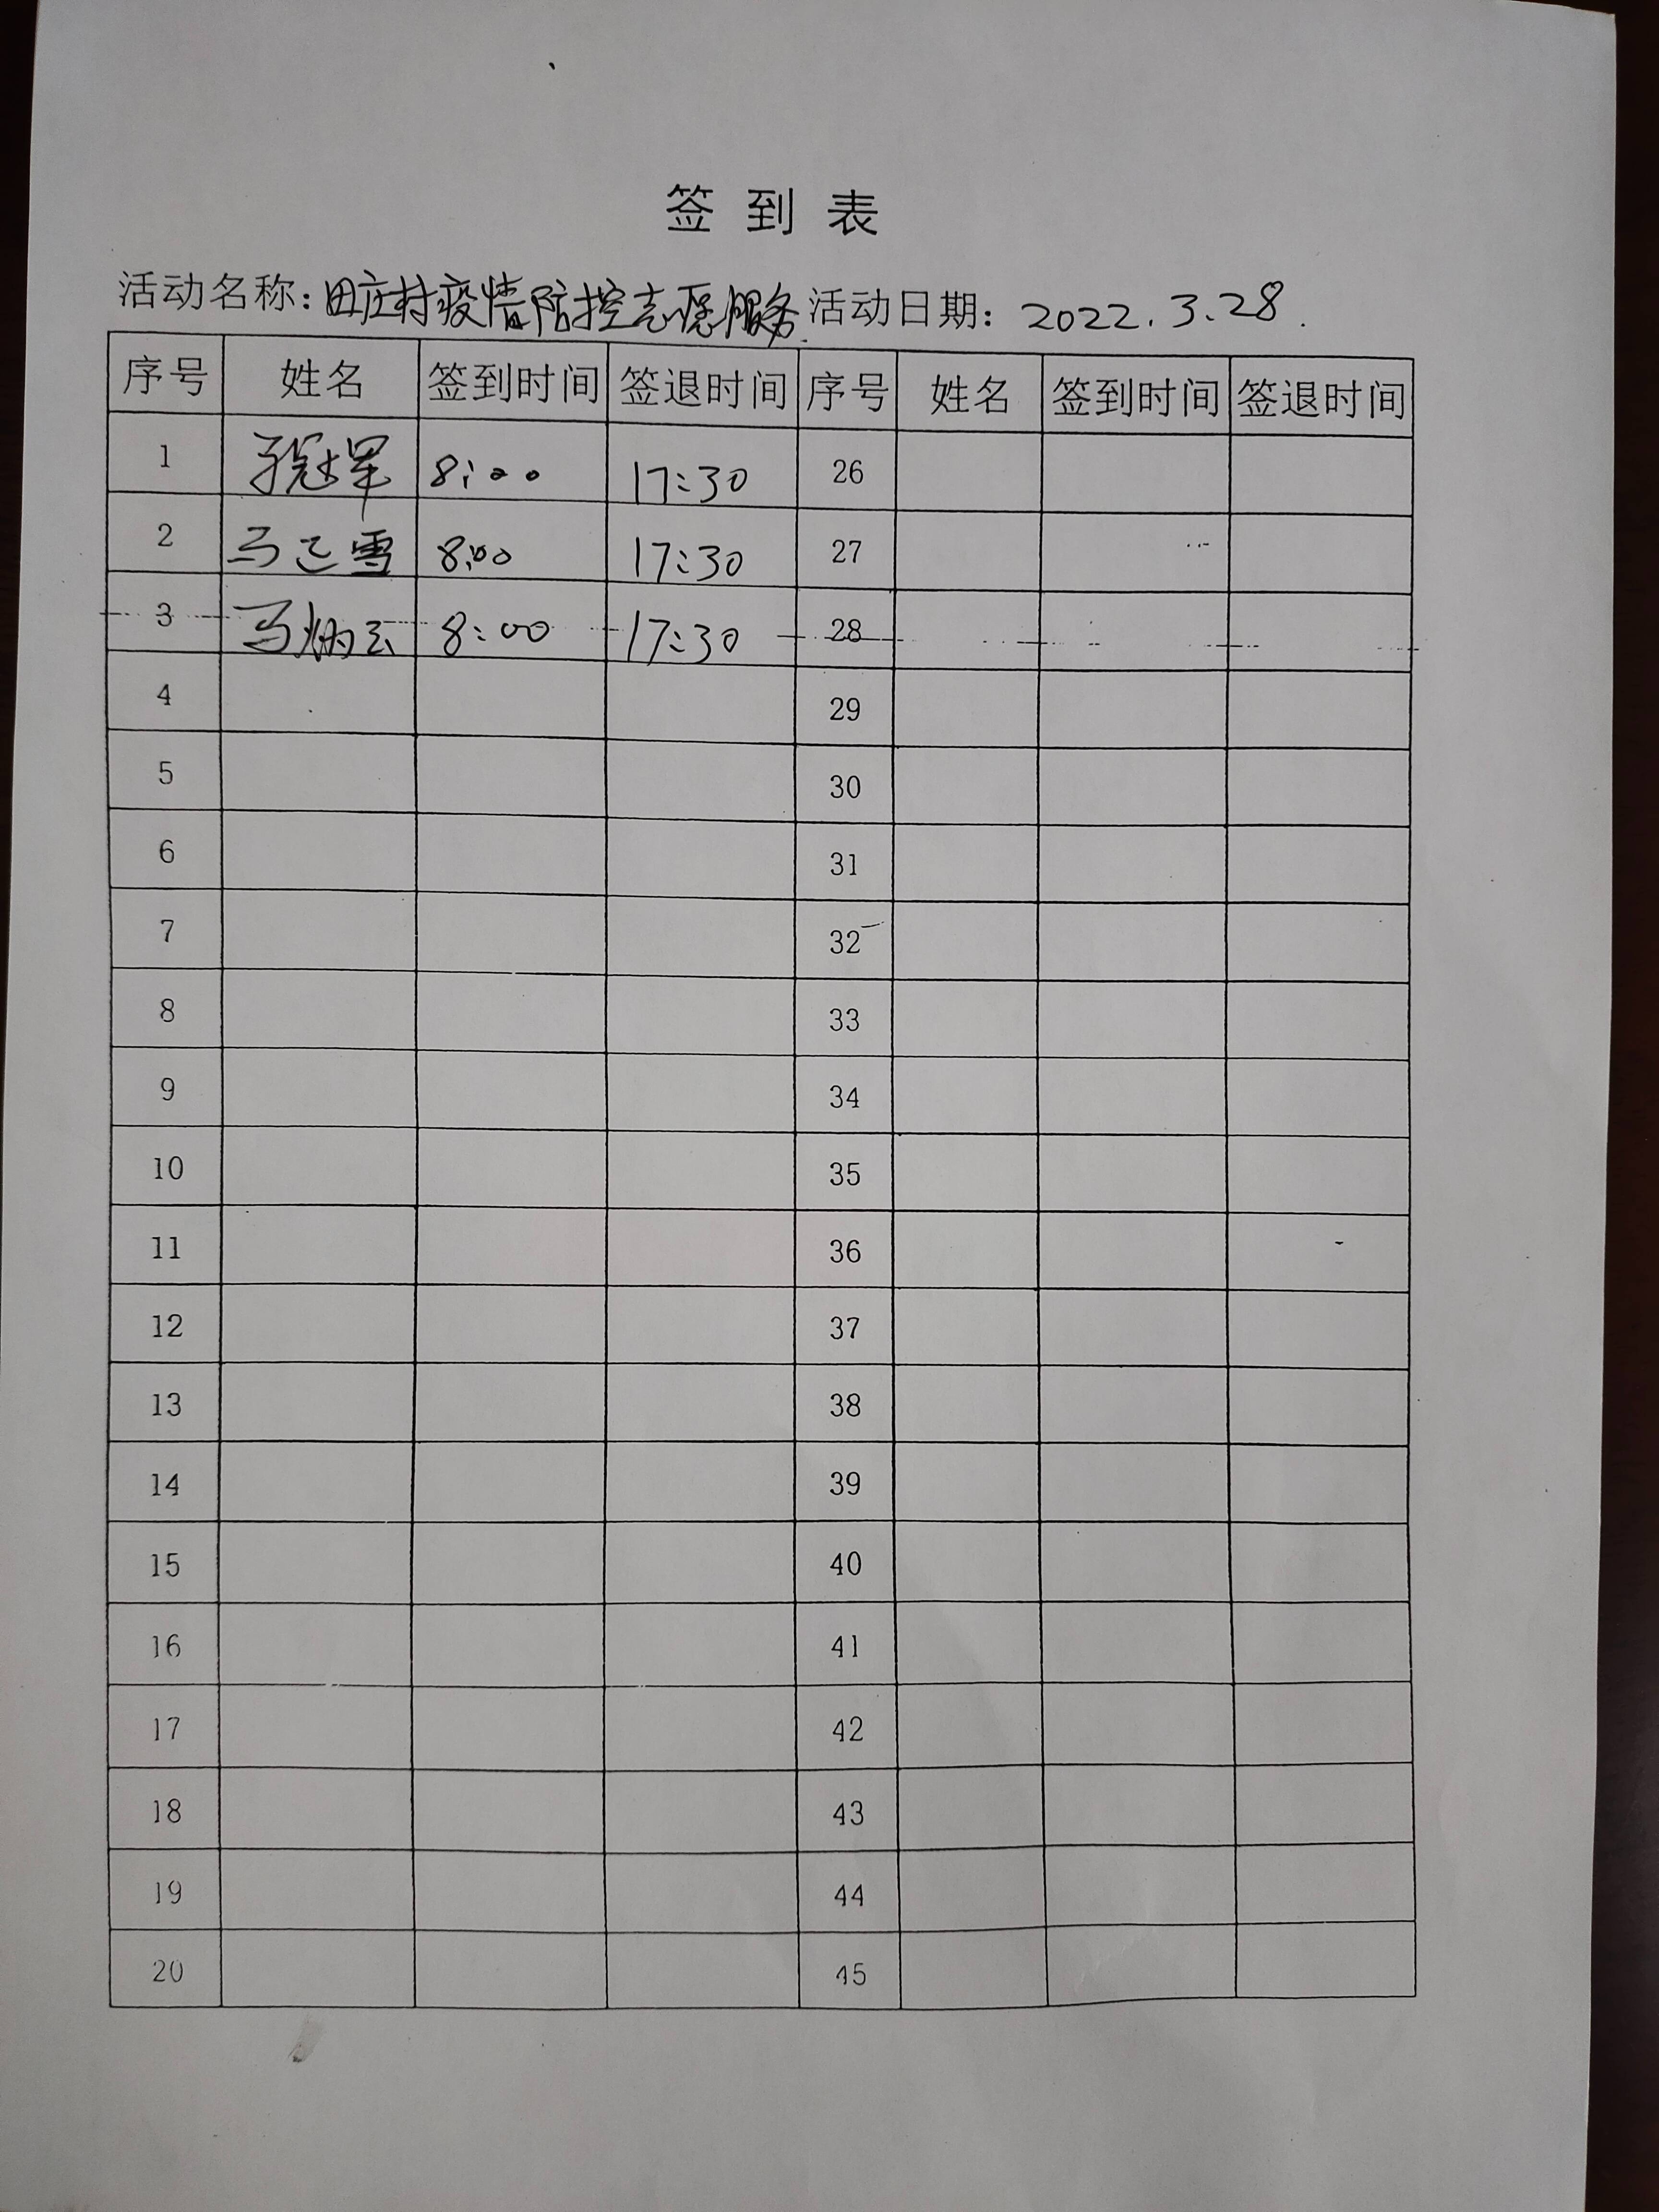 签到表
活动名称：田庄村疫情防控志愿服务 活动日期：2022.3.28.
序号 姓名 签到时间 签退时间 序号 姓名 签到时间 签退时间
1 冠军 8:00 17:30 26
2 马 雪 8:00 17:30 27
3 马炳云 8:00 17:30 28
4 29
5 30
6 31
7 32
8 33
9 34
10 35
11 36
12 37
13 38
14 39
15 40
16 41
17 42
18 43
19 44
20 45